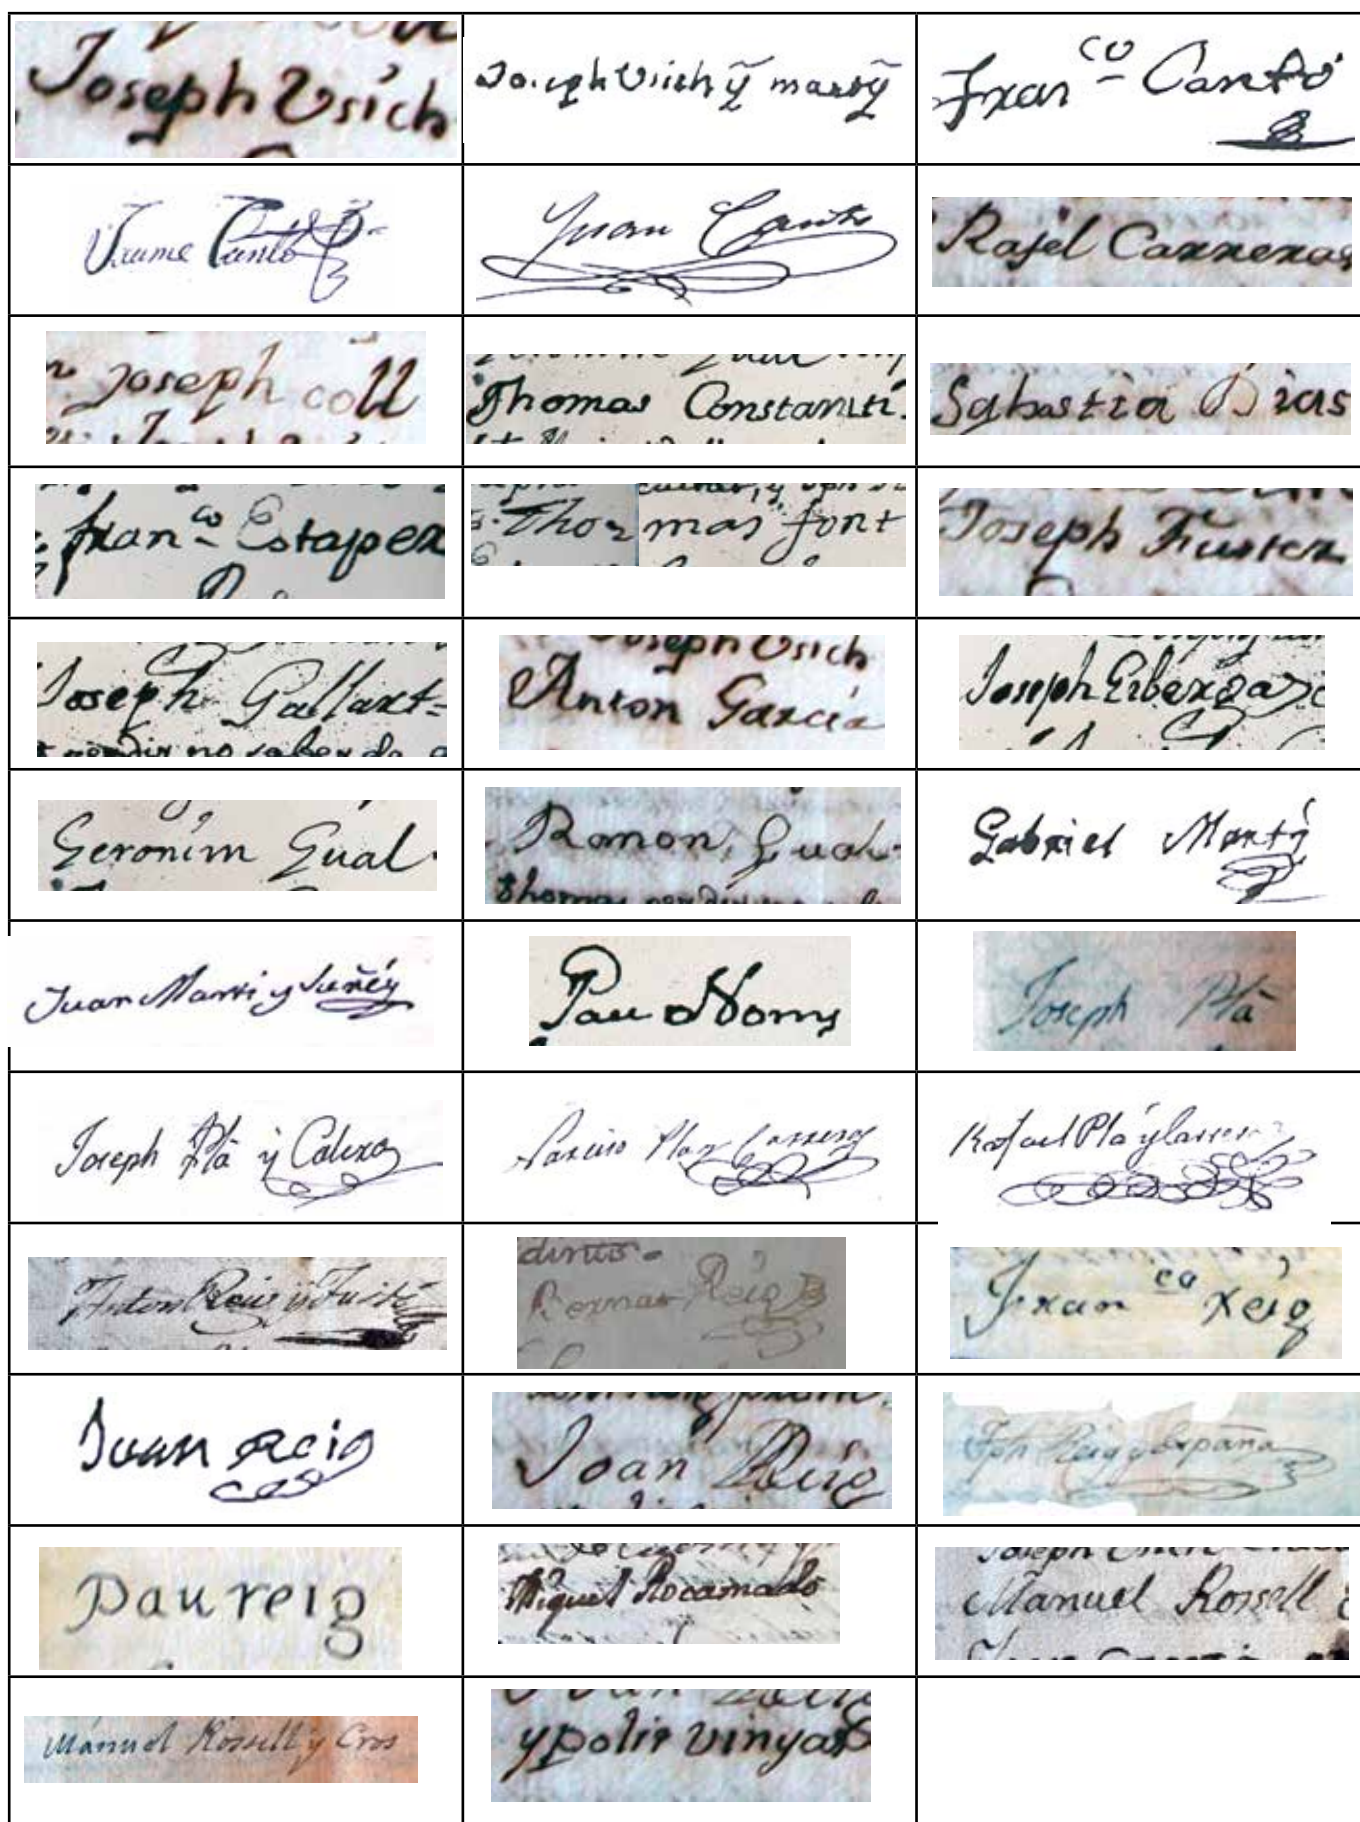 Joseph Vsich
Joseph Vsich ÿ martÿ
Fran^co Cantó
Jaume Cantó
Juan Cantó
Rafel Carreras
Joseph coll
Thomas Constantí.
Sabastia Dias
fran^co Estaper
Tho
mas font
Joseph Fuster
Joseph Gallart
Joseph Vsich
Anton Garcia
Joseph
Geronim Gual.
Ramon Gual.
Gabriel Martÿ
Juan Marti y Suñéÿ
Pau Nomy
Joseph Plà
Joseph Plà ÿ
Narciso Pla y Carreras
Rafael Plá ÿ Carreras
Anton Reig ÿ Fusté
Bernat Reig
Fran^co Reig
Juan Reig
Joan Reig
Jph Reig y España
Pau reig
Miquel Rocamado
Manuel Rossell
Manuel Rossell ÿ Cros
ypolit vinyas